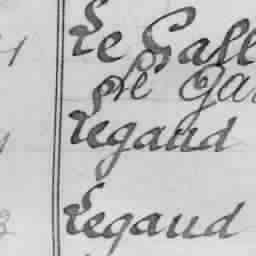 Le Gall
Le Ga
Legaud
Legaud